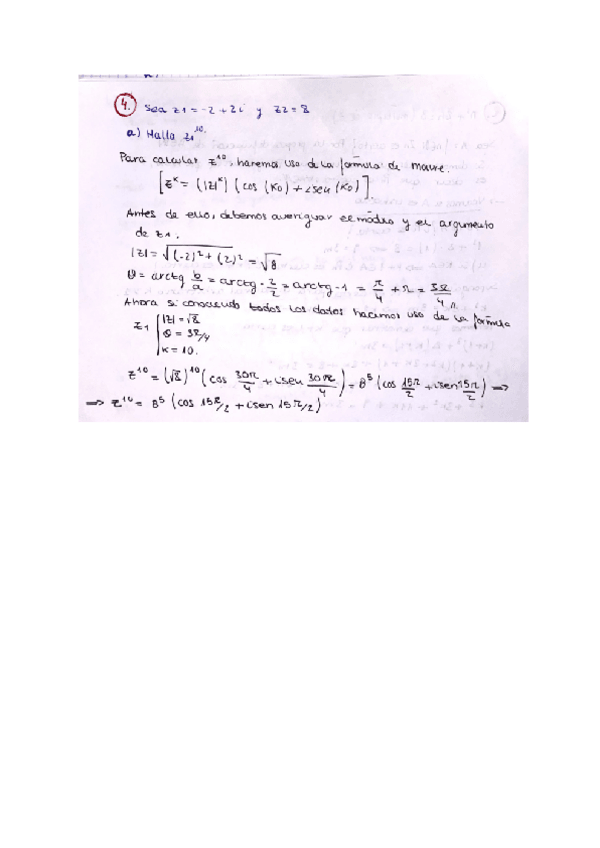 4. Sea z1 = -2 + 2i y z2 = 8
a) Halla z1^10.
Para calcular z^10, haremos uso de la fórmula de moivre.
[z^k = (|z|^k) (cos (kθ) + isen (kθ)]
Antes de ello, debemos averiguar el módulo y el argumento
de z1.
|z| = √((-2)^2 + (2)^2) = √8
θ = arctg b/a = arctg - 2/2 = arctg -1 = π/4 + π = 3π/4
Ahora si conociendo todos los datos hacimos uso de la fórmula
z1 { |z| = √8
θ = 3π/4
k = 10.
z^10 = (√8)^10 (cos 30π/4 + isen 30π/4) = 8^5 (cos 15π/2 + isen 15π/2) ⇒
⇒ z^10 = 8^5 (cos 15π/2 + isen 15π/2)